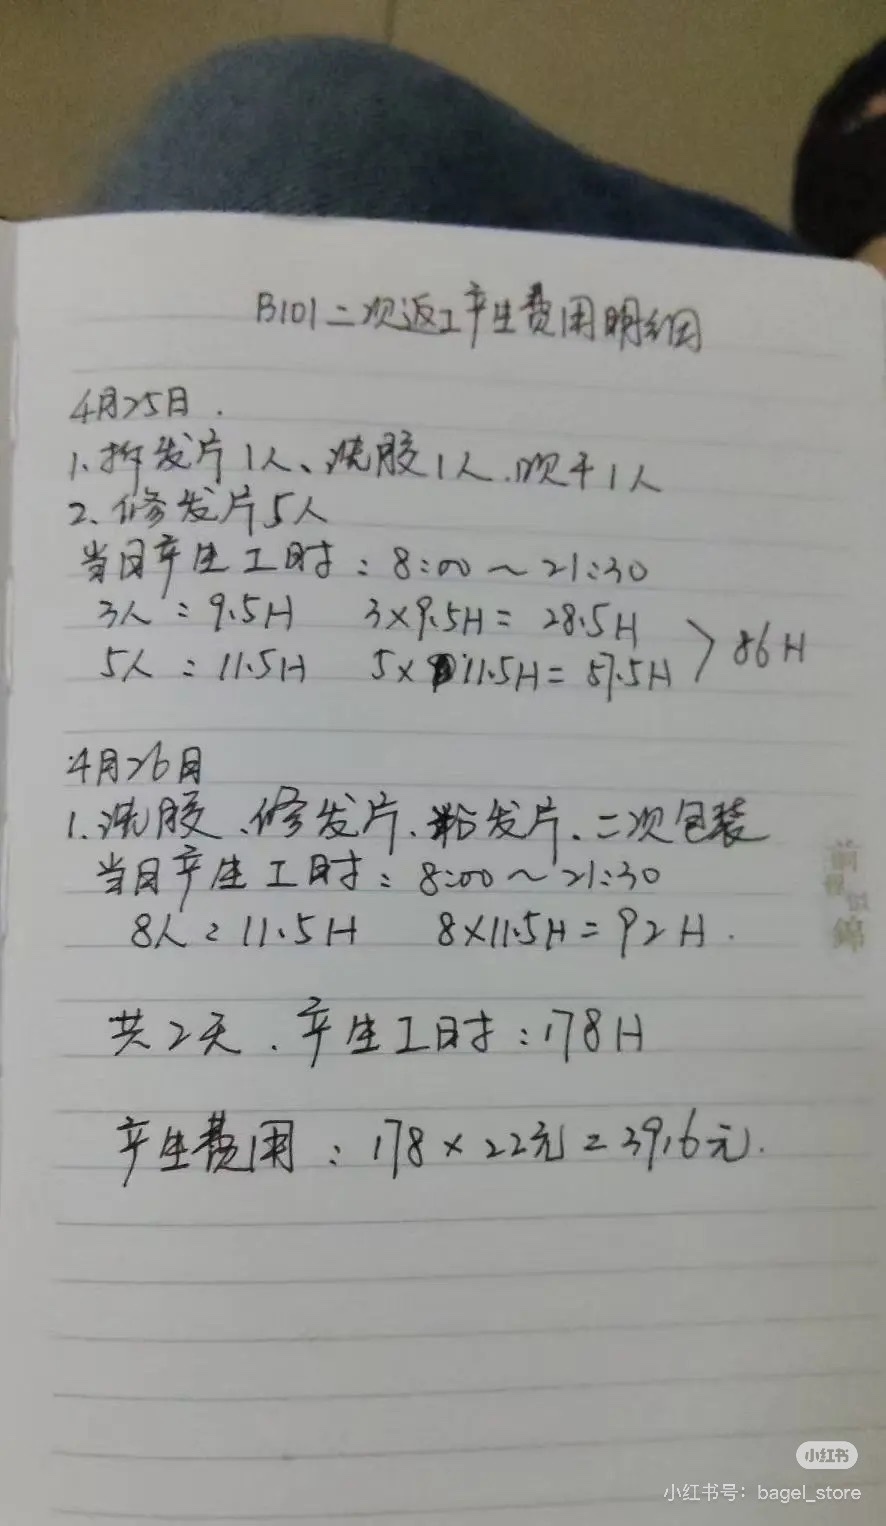 B101二次返工产生费用明细
4月25日.
1、拆发片1人、洗胶1人、吹干1人
2、修发片5人
当日产生工时：8:00～21:30
3人：9.5H 3×9.5H=28.5H
5人：11.5H 5×11.5H=57.5H
>86H
4月26日
1.洗胶、修发片、粘发片、二次包装
当日产生工时：8:00～21:30
8人：11.5H 8×11.5H=92H.
共2天、产生工时：178H
产生费用：178×22元=3916元.
小红书
小红书号：bagel_store